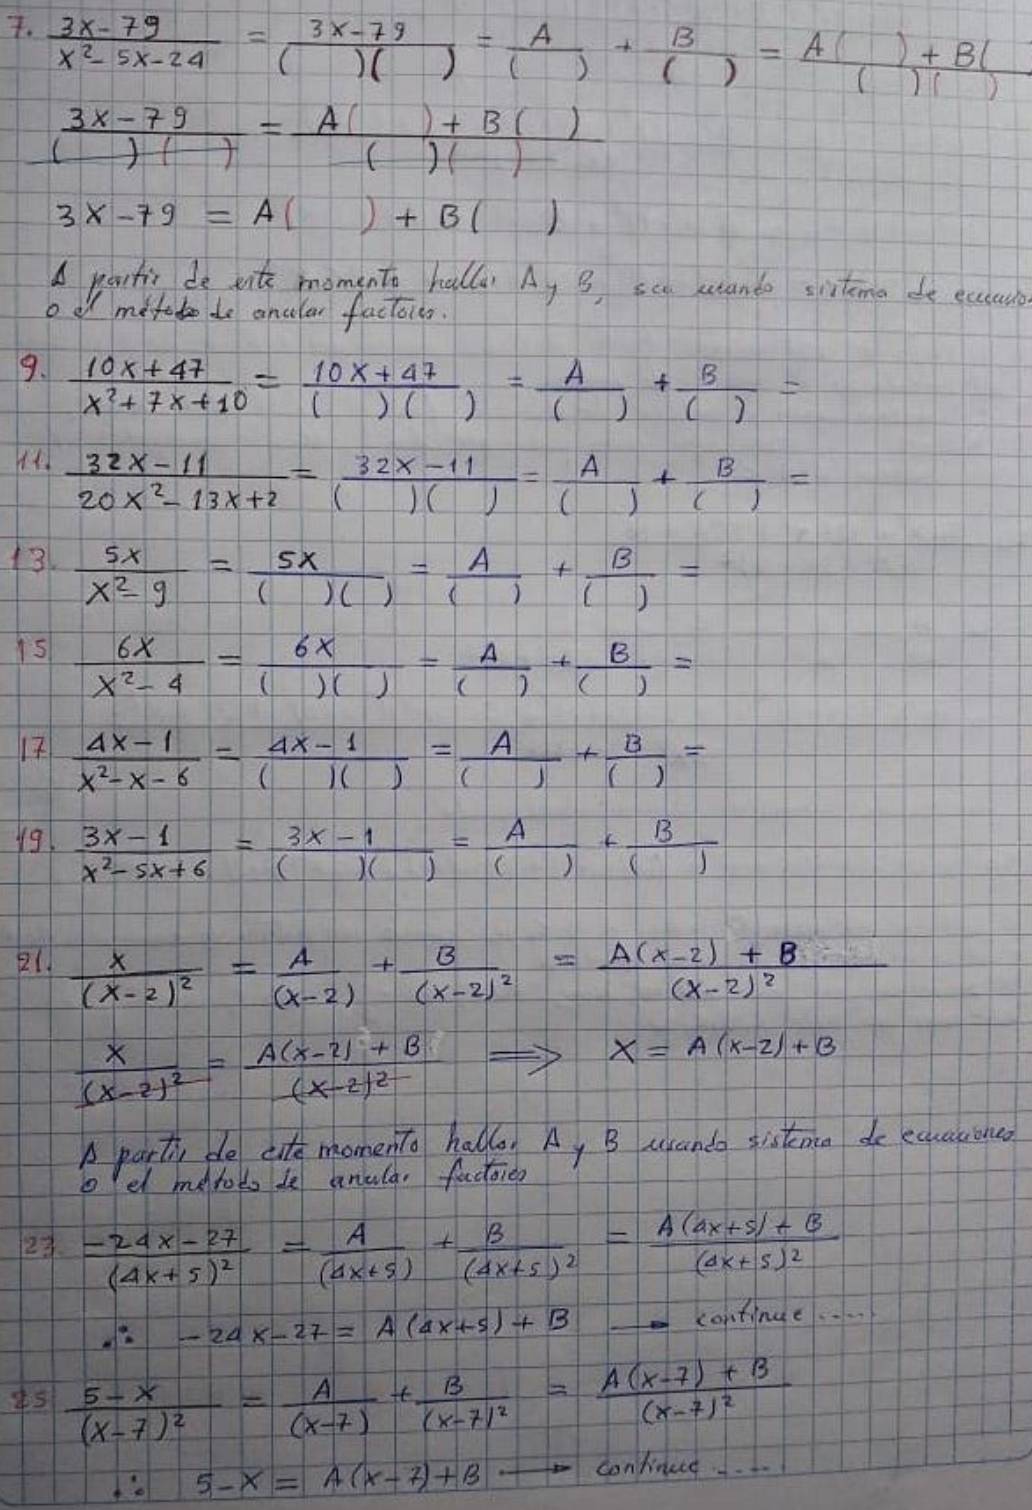 7. (3x-79)/(x²-5x-24) = (3x-79)/(( )( )) = A/( ) + B/( ) = (A( ) + B( )/(( )( ))
(3x-79)/(( )( )) = (A( ) + B( ))/(( )( ))
3x-79 = A( ) + B( )
A partir de este momento hallar A y B, sea usando sistema de ecuacio
o el método de anular factores.
9. (10x+47)/(x²+7x+10) = (10x+47)/(( )( )) = A/( ) + B/( ) =
11. (32x-11)/(20x²-13x+2) = (32x-11)/(( )( )) = A/( ) + B/( ) =
13. 5x/(x²-9) = 5x/(( )( )) = A/( ) + B/( ) =
15 6x/(x²-4) = 6x/(( )( )) = A/( ) + B/( ) =
17 (4x-1)/(x²-x-6) = (4x-1)/(( )( )) = A/( ) + B/( ) =
19. (3x-1)/(x²-5x+6) = (3x-1)/(( )( )) = A/( ) + B/( )
21. x/(x-2)² = A/(x-2) + B/(x-2)² = (A(x-2) + B)/(x-2)²
x/(x-2)² = (A(x-2) + B)/(x-2)² ⟹ x = A(x-2)+B
A partir de este momento hallar A y B usando sistema de ecuaciones
o el método de anular factores
23 (-24x-27)/(4x+5)² = A/(4x+5) + B/(4x+5)² = (A(4x+5)+B)/(4x+5)²
∴ -24x-27 = A(4x+5)+B → continue .....
25 (5-x)/(x-7)² = A/(x-7) + B/(x-7)² = (A(x-7)+B)/(x-7)²
∴ 5-x = A(x-7)+B → continue .....